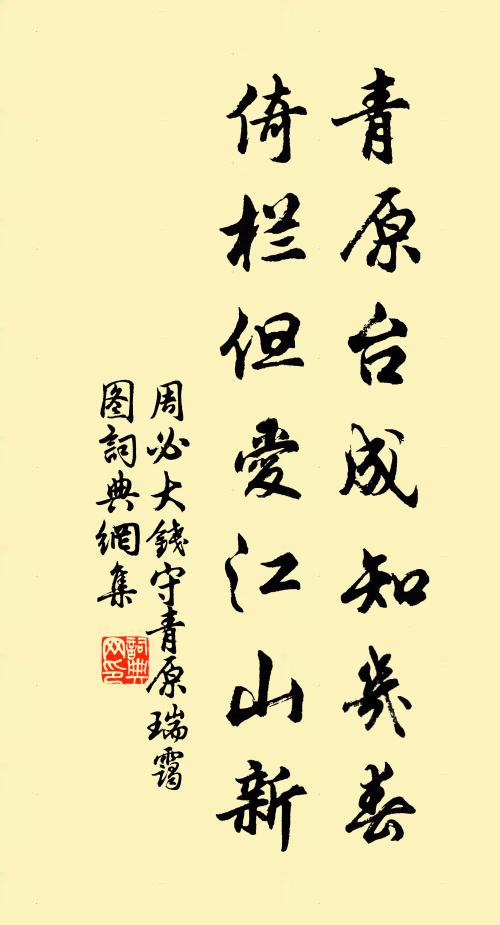 青原台成知幾春
倚栏但愛江山新
周必大錢守青原瑞靄
图詞典網集
詞典网印